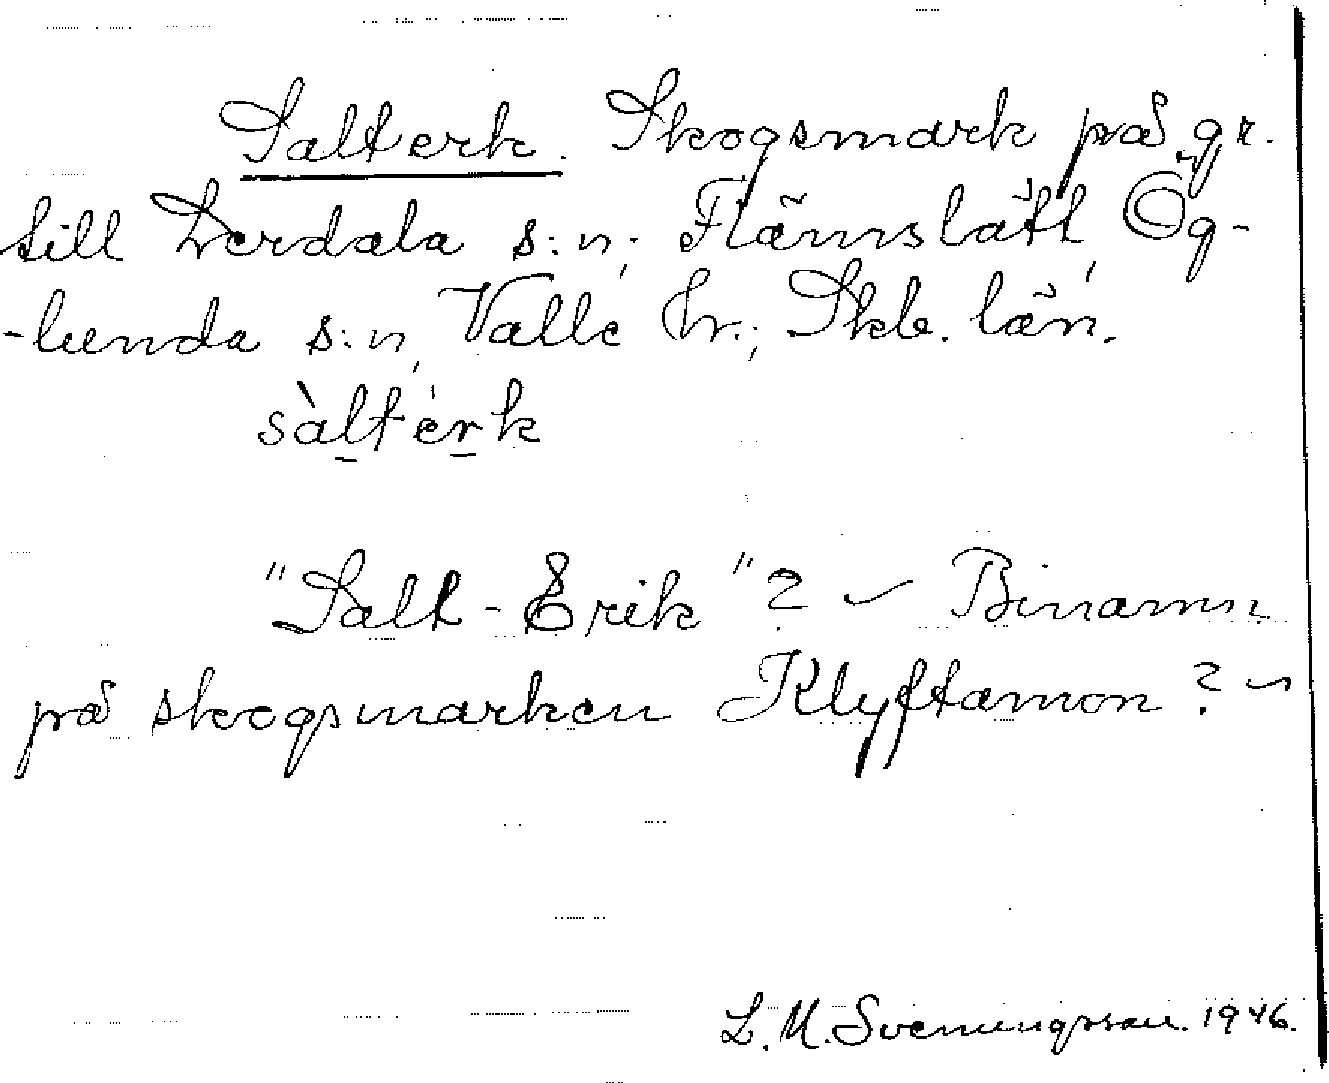 Salterk. Skogsmark på gr.
till Lerdala s:n; Flämslätt, Ög-
-lunda s:n, Valle hr.; Skb. län.
sàltérk
"Salt-Erik"? ~ Binamn
på skogsmarken Klyftamon? ~
L. M. Svenungsson. 1946.